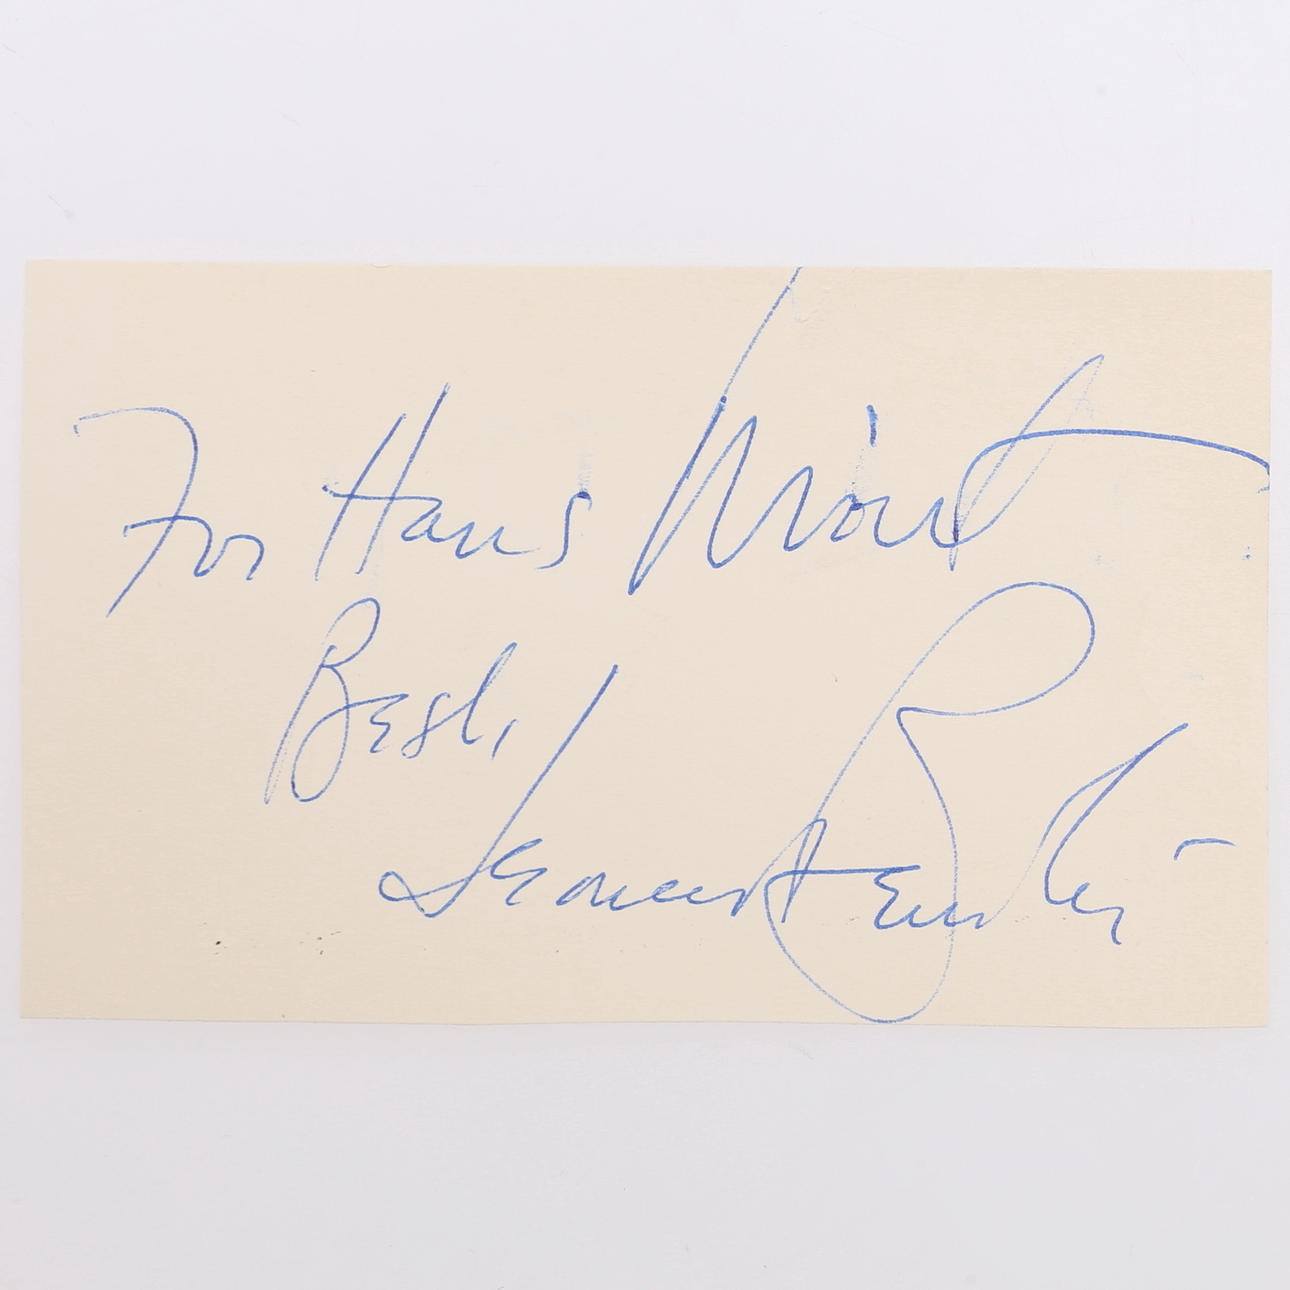 For Hans
Best,
Leonard Bernstein